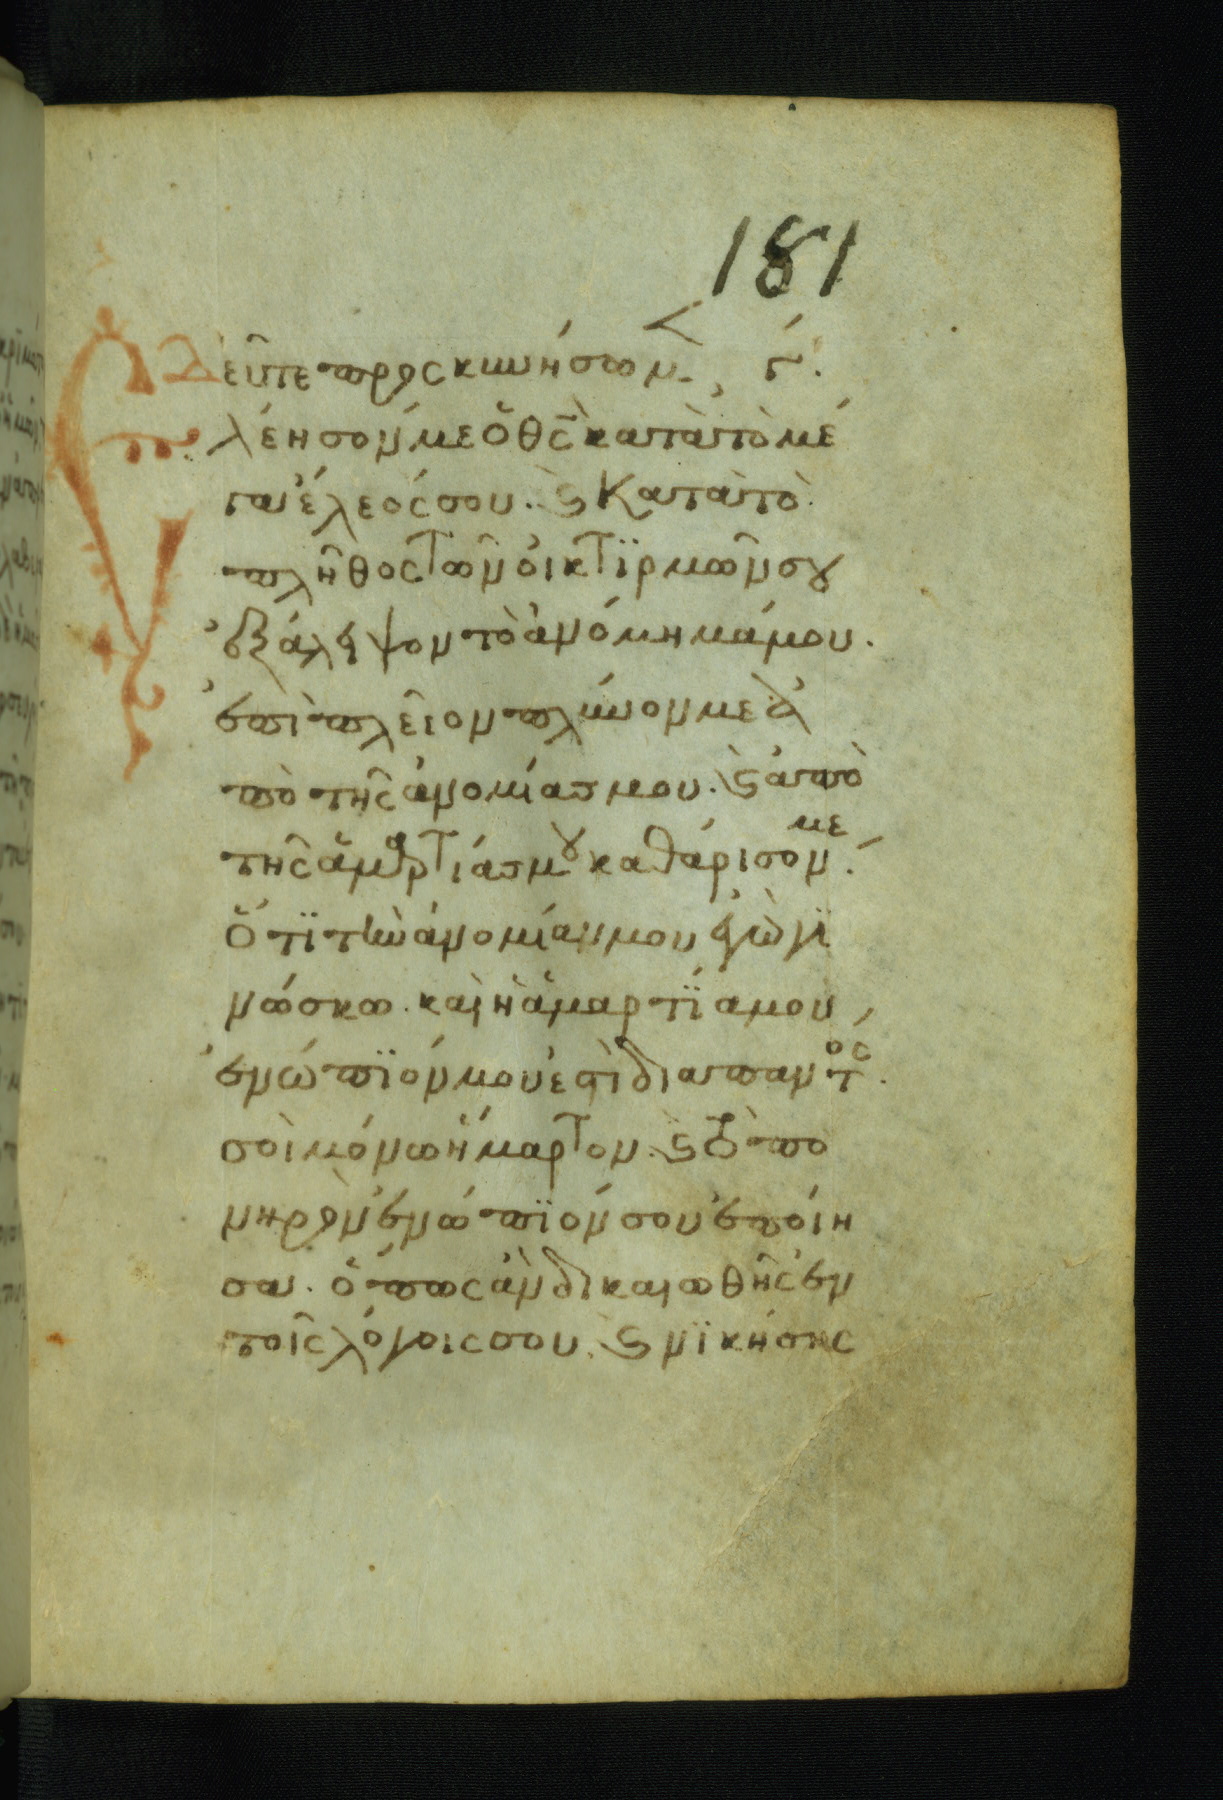 181
Δεῦτε προσκυνήσωμ. γ΄.
Ἐλέησόν με ὁ θς κατὰ τὸ μέ
γα ἔλεός σου. ϛ Κατὰ τὸ
πλῆθος τῶν οἰκτϊρμῶν σου
ἐξάλειψον τὸ ἀνόμημά μου.
ἐπὶ πλεῖον πλύνόν με ἀ
πὸ τῆς ἀνομίας μου. ϛ ἀπὸ
τῆς ἁμαρτίας μου καθάρισόν με.
ὅτϊ τὴν ἀνομίαν μου ἐγὼ γϊ
νώσκω. καὶ ἡ ἁμαρτϊα μου,
ἐνώπϊόν μου ἐστὶ διαπαντός.
σοὶ μόνω ἥμαρτον. ϛ τὸ πο
νηρὸν ἐνώπϊόν σου ἐποίη
σα. ὅπως ἂν δικαιωθῆς ἐν
τοῖς λόγοις σου. ϛ νϊκήσης